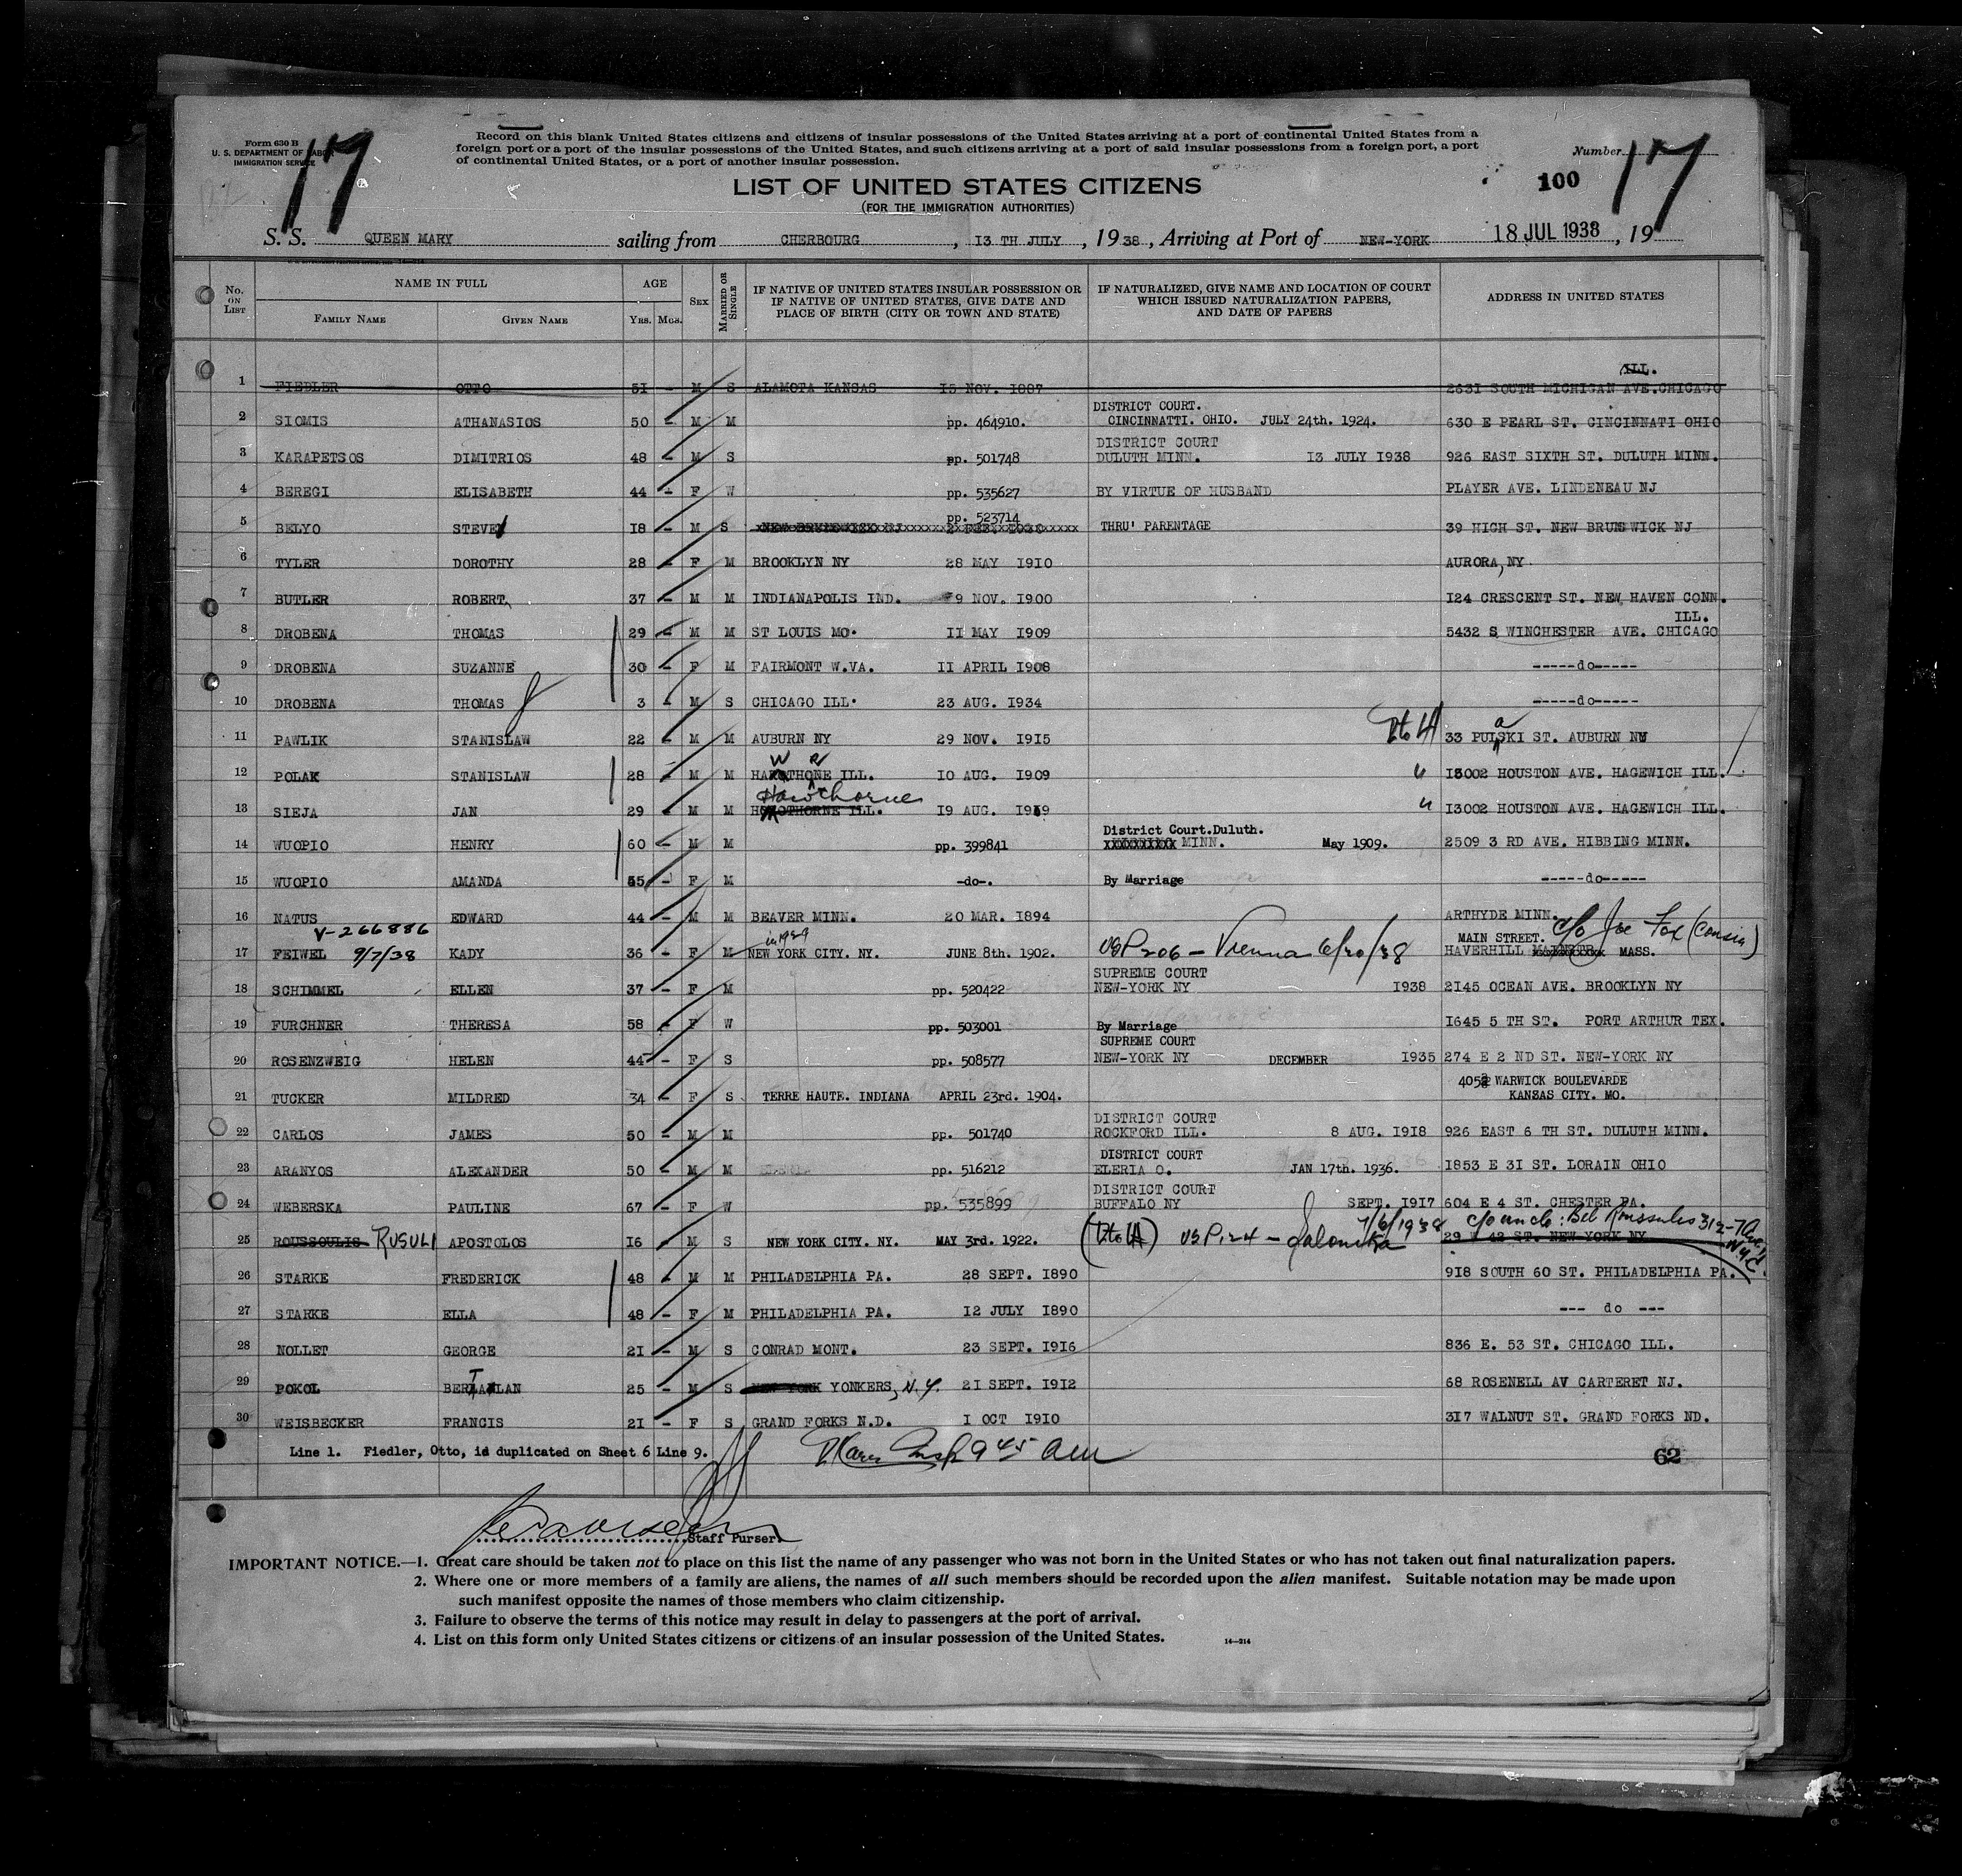 Form 630 B
U. S. DEPARTMENT OF LABOR
IMMIGRATION SERVICE
17
Record on this blank United States citizens and citizens of insular possessions of the United States arriving at a port of continental United States from a
foreign port or a port of the insular possessions of the United States, and such citizens arriving at a port of said insular possessions from a foreign port, a port
of continental United States, or a port of another insular possession.
Number 17
100
LIST OF UNITED STATES CITIZENS
(FOR THE IMMIGRATION AUTHORITIES)
S. S. QUEEN MARY sailing from CHERBOURG, 13 TH JULY, 1938, Arriving at Port of NEW-YORK 18 JUL 1938, 19
No. ON LIST NAME IN FULL FAMILY NAME GIVEN NAME AGE YRS. MOS. SEX MARRIED OR SINGLE IF NATIVE OF UNITED STATES INSULAR POSSESSION OR IF NATIVE OF UNITED STATES, GIVE DATE AND PLACE OF BIRTH (CITY OR TOWN AND STATE) IF NATURALIZED, GIVE NAME AND LOCATION OF COURT WHICH ISSUED NATURALIZATION PAPERS, AND DATE OF PAPERS ADDRESS IN UNITED STATES
ILL.
1 FIEDLER OTTO 51 - M S ALAMOTA KANSAS 15 NOV. 1887 2631 SOUTH MICHIGAN AVE.CHICAGO
DISTRICT COURT.
2 SIOMIS ATHANASIOS 50 - M M pp. 464910. CINCINNATTI. OHIO. JULY 24th. 1924. 630 E PEARL ST. CINCINNATI OHIO
DISTRICT COURT
3 KARAPETSOS DIMITRIOS 48 - M S pp. 501748 DULUTH MINN. 13 JULY 1938 926 EAST SIXTH ST. DULUTH MINN.
4 BEREGI ELISABETH 44 - F W pp. 535627 BY VIRTUE OF HUSBAND PLAYER AVE. LINDENEAU NJ
pp. 523714
5 BELYO STEVE 18 - M S NEW BRUNSWICK NJ THRU' PARENTAGE 39 HIGH ST. NEW BRUNSWICK NJ
6 TYLER DOROTHY 28 - F M BROOKLYN NY 28 MAY 1910 AURORA, NY
7 BUTLER ROBERT 37 - M M INDIANAPOLIS IND. 9 NOV. 1900 124 CRESCENT ST. NEW HAVEN CONN.
ILL.
8 DROBENA THOMAS 29 - M M ST LOUIS MO. 11 MAY 1909 5432 S WINCHESTER AVE. CHICAGO
9 DROBENA SUZANNE 30 - F M FAIRMONT W.VA. 11 APRIL 1908 -----do-----
10 DROBENA THOMAS J 3 - M S CHICAGO ILL. 23 AUG. 1934 -----do-----
11 PAWLIK STANISLAW 22 - M M AUBURN NY 29 NOV. 1915 33 PULaSKI ST. AUBURN NY
12 POLAK STANISLAW 28 - M M HAWTHORNE ILL. 10 AUG. 1909 " 13002 HOUSTON AVE. HAGEWICH ILL.
Hawthorne
13 SIEJA JAN 29 - M M HAWTHORNE ILL. 19 AUG. 19 9 " 13002 HOUSTON AVE. HAGEWICH ILL.
District Court.Duluth.
14 WUOPIO HENRY 60 - M M pp. 399841 MINN. May 1909. 2509 3 RD AVE. HIBBING MINN.
15 WUOPIO AMANDA 55 - F M -do-. By Marriage -----do-----
16 NATUS EDWARD 44 - M M BEAVER MINN. 20 MAR. 1894 ARTHYDE MINN.
V-266886 in 1929 MAIN STREET. c/o Joe Fox (Cousin)
17 FEIWEL 9/7/38 KADY 36 - F M NEW YORK CITY. NY. JUNE 8th. 1902. USP 206 - Vienna 6/20/38 HAVERHILL MASS.
SUPREME COURT
18 SCHIMMEL ELLEN 37 - F M pp. 520422 NEW-YORK NY 1938 2145 OCEAN AVE. BROOKLYN NY
19 FURCHNER THERESA 58 - F W pp. 503001 By Marriage 1645 5 TH ST. PORT ARTHUR TEX.
SUPREME COURT
20 ROSENZWEIG HELEN 44 - F S pp. 508577 NEW-YORK NY DECEMBER 1935 274 E 2 ND ST. NEW-YORK NY
4052 WARWICK BOULEVARDE
21 TUCKER MILDRED 34 - F S TERRE HAUTE. INDIANA APRIL 23rd. 1904. KANSAS CITY. MO.
DISTRICT COURT
22 CARLOS JAMES 50 - M M pp. 501740 ROCKFORD ILL. 8 AUG. 1918 926 EAST 6 TH ST. DULUTH MINN.
DISTRICT COURT
23 ARANYOS ALEXANDER 50 - M M pp. 516212 ELERIA O. JAN 17th. 1936. 1853 E 31 ST. LORAIN OHIO
DISTRICT COURT
24 WEBERSKA PAULINE 67 - F W pp. 535899 BUFFALO NY SEPT. 1917 604 E 4 ST. CHESTER PA.
7/6/1938 c/o uncle: Bel Roussules 312-7 Ave. NYC
25 ROUSSOULIS RUSULI APOSTOLOS 16 - M S NEW YORK CITY. NY. MAY 3rd. 1922. USP. 124 - Salonika 29 W 42 ST. NEW YORK NY
26 STARKE FREDERICK 48 - M M PHILADELPHIA PA. 28 SEPT. 1890 918 SOUTH 60 ST. PHILADELPHIA PA.
27 STARKE ELLA 48 - F M PHILADELPHIA PA. 12 JULY 1890 --- do ---
28 NOLLET GEORGE 21 - M S CONRAD MONT. 23 SEPT. 1916 836 E. 53 ST. CHICAGO ILL.
29 POKOL BERTALAN 25 - M S NEW YORK YONKERS, N.Y. 21 SEPT. 1912 68 ROSENELL AV CARTERET NJ.
30 WEISBECKER FRANCIS 21 - F S GRAND FORKS N.D. 1 OCT 1910 317 WALNUT ST. GRAND FORKS ND.
Line 1. Fiedler, Otto, is duplicated on Sheet 6 Line 9. 9 45 am 62
Staff Purser
IMPORTANT NOTICE.—1. Great care should be taken not to place on this list the name of any passenger who was not born in the United States or who has not taken out final naturalization papers.
2. Where one or more members of a family are aliens, the names of all such members should be recorded upon the alien manifest. Suitable notation may be made upon
such manifest opposite the names of those members who claim citizenship.
3. Failure to observe the terms of this notice may result in delay to passengers at the port of arrival.
4. List on this form only United States citizens or citizens of an insular possession of the United States. 14—214